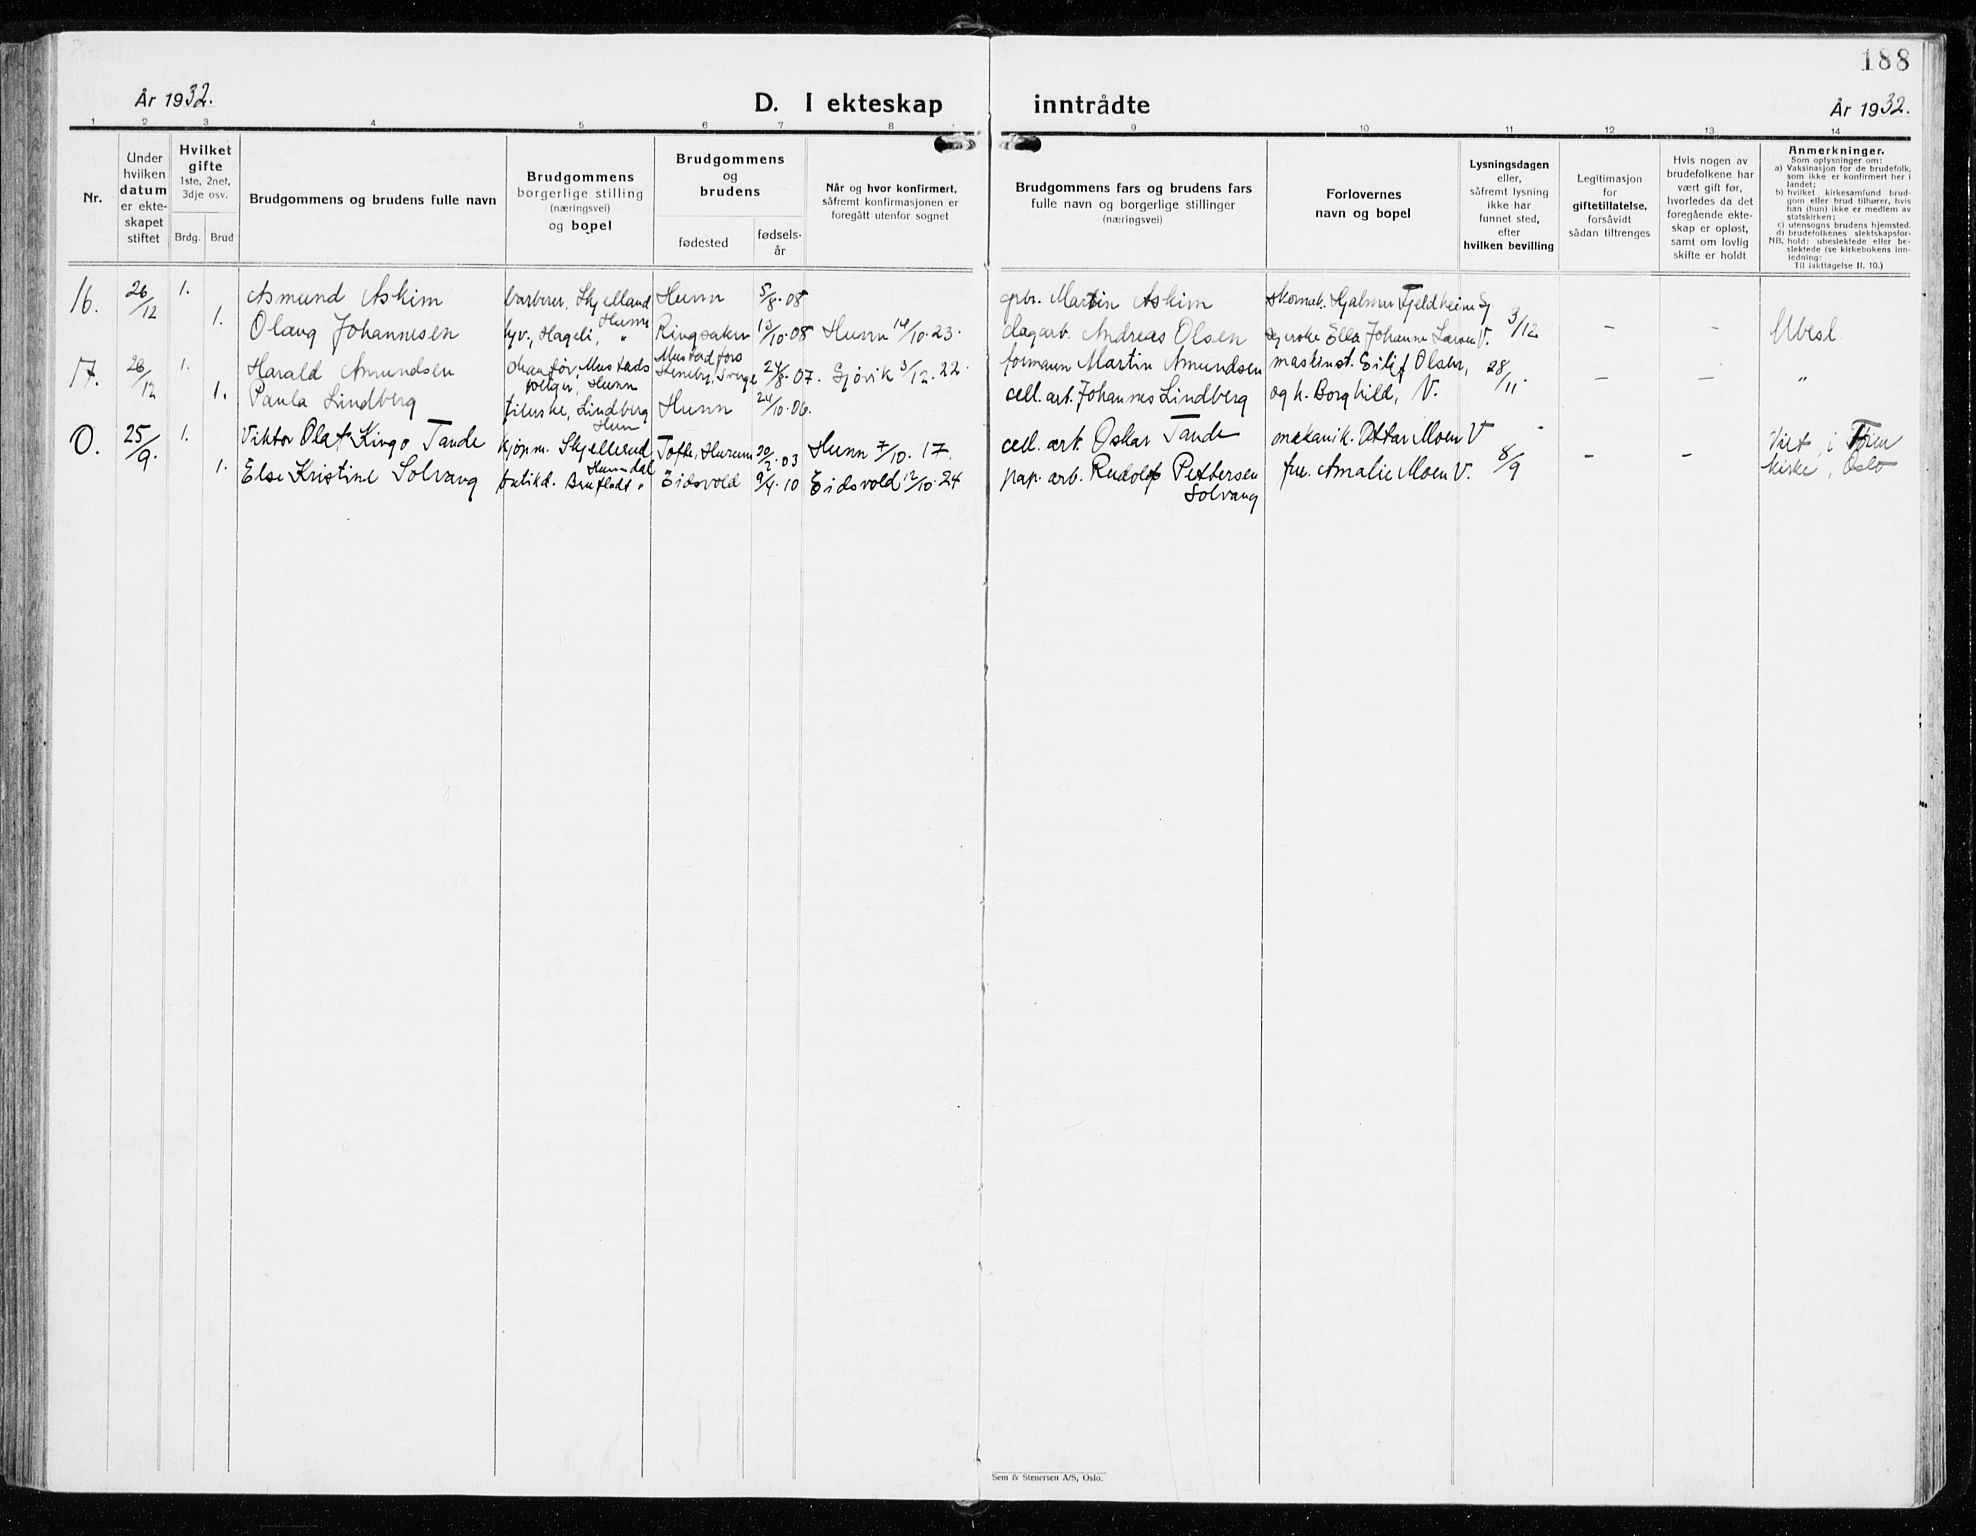 188
År 1932.
D. I ekteskap inntrådte
År 1932.
1 2 3 4 5 6 7 8 9 10 11 12 13 14
Nr.
Under
hvilken
datum
er ekte-
skapet
stiftet
Hvilket
gifte
1ste, 2net,
3dje osv.
Brdg. Brud
Brudgommens og brudens fulle navn
Brudgommens
borgerlige stilling
(næringsvei)
og bopel
Brudgommens
og
brudens
fødested
fødsels-
år
Når og hvor konfirmert,
såfremt konfirmasjonen er
foregått utenfor sognet
Brudgommens fars og brudens fars
fulle navn og borgerlige stillinger
(næringsvei)
Forlovernes
navn og bopel
Lysningsdagen
eller,
såfremt lysning
ikke har
funnet sted,
efter
hvilken bevilling
Legitimasjon
for
giftetillatelse,
forsåvidt
sådan tiltrenges
Hvis nogen av
brudefolkene har
vært gift før,
hvorledes da det
foregående ekte-
skap er opløst,
samt om lovlig
skifte er holdt
Anmerkninger.
Som oplysninger om:
a) Vaksinasjon for de brudefolk,
som ikke er konfirmert her i
landet;
b) hvilket kirkesamfund brud-
gom eller brud tilhører, hvis
han (hun) ikke er medlem av
statskirken;
c) utensogns brudens hjemsted.
d) brudefolkenes slektskapsfor-
NB. hold: ubeslektede eller be-
slektede (se kirkebokens inn-
ledning:
Til iakttagelse II. 10.)
16. 26/12 1. Asmund Askim barberer, Skjelland Hunn 5/8.08 Martin Askim skomak. Hjalmar Fjeldheim
1. Olaug Johannesen Hageli, " Hunn Ringsaker 13/10.08 Hunn 14/10.23. dagarb. Andreas Olsen Ella Johanne Larsen V. 3/12 – – Ubesl.
17. 26/12 1. Harald Amundsen Mustads Hunn Mustadfors Steneby, Sverge 24/8.07. Gjøvik 3/12.22. formann Martin Amundsen maskinst. Eilif Olsen, 28/11 – – "
1. Paula Lindberg Lindberg Hunn 24/10.06. cell. arb. Johannes Lindberg og h. Borghild, V.
0. 25/9. 1. Viktor Olaf Kingo Tande kjøpm. Skjellerud Hunn Tofte, Hurum 20/2.03 Hunn 7/10.17. cell. arb. Oskar Tande mekanik. Ottar Moen V 8/9 – – Viet i Tøien
1. Else Kristine Solvang butikd. Brufladt Hunndal Eidsvold 9/4.10 Eidsvold 12/10.24 pap. arb. Rudolf Pettersen fru Amalie Moen V. kirke, Oslo
Solvang
Sem & Stenersen A/S, Oslo.